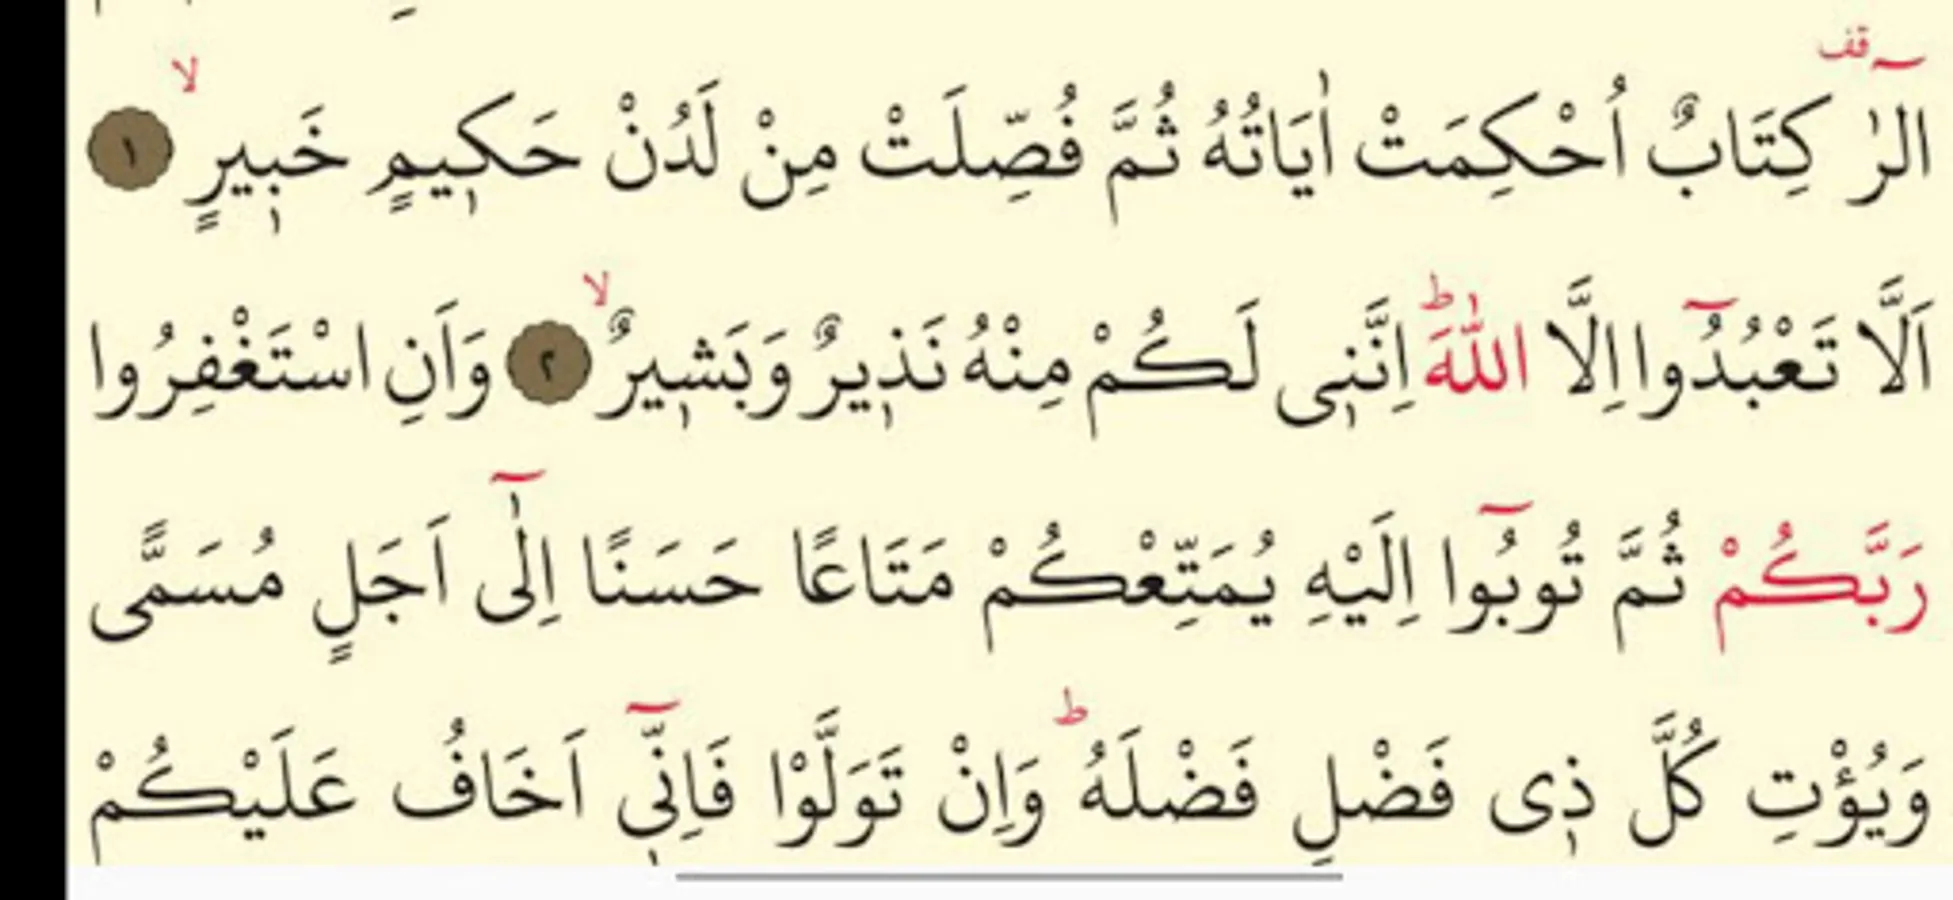 الٓرٰ ۠قف كِتَابٌ اُحْكِمَتْ اٰيَاتُهُ ثُمَّ فُصِّلَتْ مِنْ لَدُنْ حَكٖيمٍ خَبٖيرٍۙ ١
اَلَّا تَعْبُدُٓوا اِلَّا اللّٰهَؕ اِنَّنٖى لَكُمْ مِنْهُ نَذٖيرٌ وَبَشٖيرٌۙ ٢ وَاَنِ اسْتَغْفِرُوا
رَبَّكُمْ ثُمَّ تُوبُٓوا اِلَيْهِ يُمَتِّعْكُمْ مَتَاعًا حَسَنًا اِلٰٓى اَجَلٍ مُسَمًّى
وَيُؤْتِ كُلَّ ذٖى فَضْلٍ فَضْلَهُؕ وَاِنْ تَوَلَّوْا فَاِنّٖٓى اَخَافُ عَلَيْكُمْ